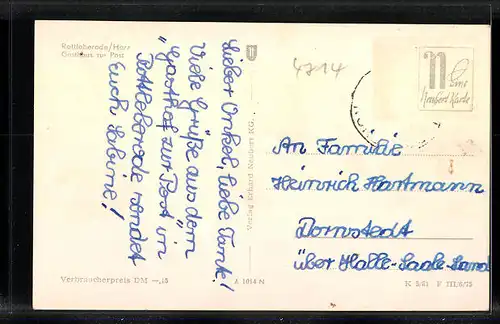 Rottleberode/Harz
Gasthaus zur Post
Lieber Onkel, liebe Tante!
Viele Grüße aus dem
"Gasthof zur Post" in
Rottleberode sendet
Euch Sabine!
Verbraucherpreis DM —,15
Verlag Erhard Neubert KG.
A 1014 N
4714
N
Eine
Neubert Karte
An Familie
Heinrich Hartmann
Dornstedt
über Halle-Saale-Land
K 5/61 F III/6/75